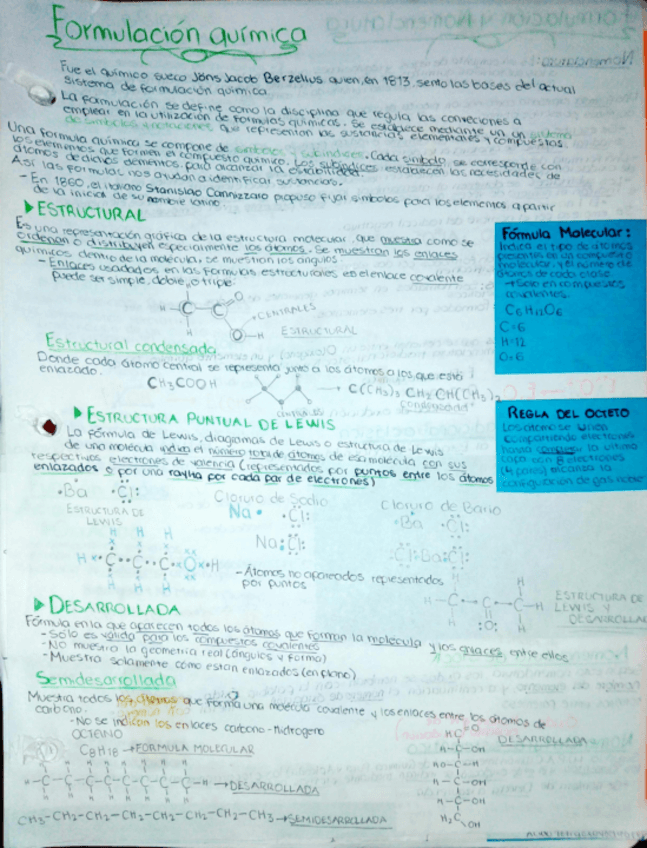 Formulación química
Fue el químico sueco Jöns Jacob Berzelius quien, en 1813, sento las bases del actual
sistema de formulación química.
La formulación se define como la disciplina que regula las
emplear en la utilización de fórmulas químicas. Se establece mediante un un sistema
de símbolos y que representan las sustancias elementales y compuestas.
Una formula química se compone de símbolos y subíndices. Cada símbolo se corresponde con
los elementos que forman el compuesto químico. Los subíndices establecen las necesidades de
átomos de dichos elementos para alcanzar la estabilidad
Así las formulas nos ayudan a identificar sustancias.
- En 1860, el italiano Stanislao Cannizzaro propuso fijar símbolos para los elementos a partir
de la inicial de su nombre latino.
ESTRUCTURAL
Es una representación gráfica de la estructura molecular, que muestra como se
ordenan o distribuyen especialmente los átomos. Se muestran los enlaces
químicos dentro de la molécula, se muestran los ángulos
- Enlaces usadados en las formulas estructurales es el enlace covalente
Puede ser simple, doble, o triple.
Fórmula Molecular:
Indica el tipo de átomos
presentes en un compuesto
molecular, y el número de
átomos de cada clase.
Solo en compuestos
covalentes.
C6H12O6
C=6
H=12
O=6
H
H-C-C
O
CENTRALES
H
O-H
ESTRUCTURAL
Estructural condensada
Donde cada átomo central se representa junto a los átomos a los que está
enlazado.
CH3COOH
→ C(CH3)3 CH2 CH(CH3)2
Condensada
CENTRALES
ESTRUCTURA PUNTUAL DE LEWIS
La fórmula de Lewis, diagramas de Lewis o estructura de Lewis
de una molécula indica el número total de átomos de esa molécula con sus
respectivos electrones de valencia (representados por puntos entre los átomos
enlazados o por una raya por cada par de electrones)
REGLA DEL OCTETO
Los átomo se unen
compartiendo electrones
hasta completar la última
capa con 8 electrones
(4 pares) alcanza la
configuración de gas noble
·Ba ·Cl:
Cloruro de Sodio
Cloruro de Bario
ESTRUCTURA DE
LEWIS
Na· ·Cl:
·Ba· ·Cl:
Na:Cl:
:Cl:Ba:Cl:
H H H
H C C C O H
H H H
- Átomos no apareados representados
por puntos
H H
H-C-C-C-H
:O: H
ESTRUCTURA DE
LEWIS Y
DESARROLLA
DESARROLLADA
Fórmula en la que aparecen todos los átomos que forman la molécula y los enlaces entre ellos
- Sólo es válida para los compuestos covalentes
- NO muestra la geometría real (ángulos y forma)
- Muestra solamente cómo están enlazados (en plano)
Semidesarrollada
Muestra todos los átomos que forma una molécula covalente y los enlaces entre los átomos de
carbono.
- No se indican los enlaces carbono-hidrogeno
OCTANO
C8H18 → FORMULA MOLECULAR
H H H H H H H H
H-C-C-C-C-C-C-C-C-H → DESARROLLADA
H H H H H H H H
CH3-CH2-CH2-CH2-CH2-CH2-CH2-CH3 → SEMIDESARROLLADA
HC=O
DESARROLLADA
H-C-OH
HO-C-H
H-C-OH
H-C-OH
H2C
OH